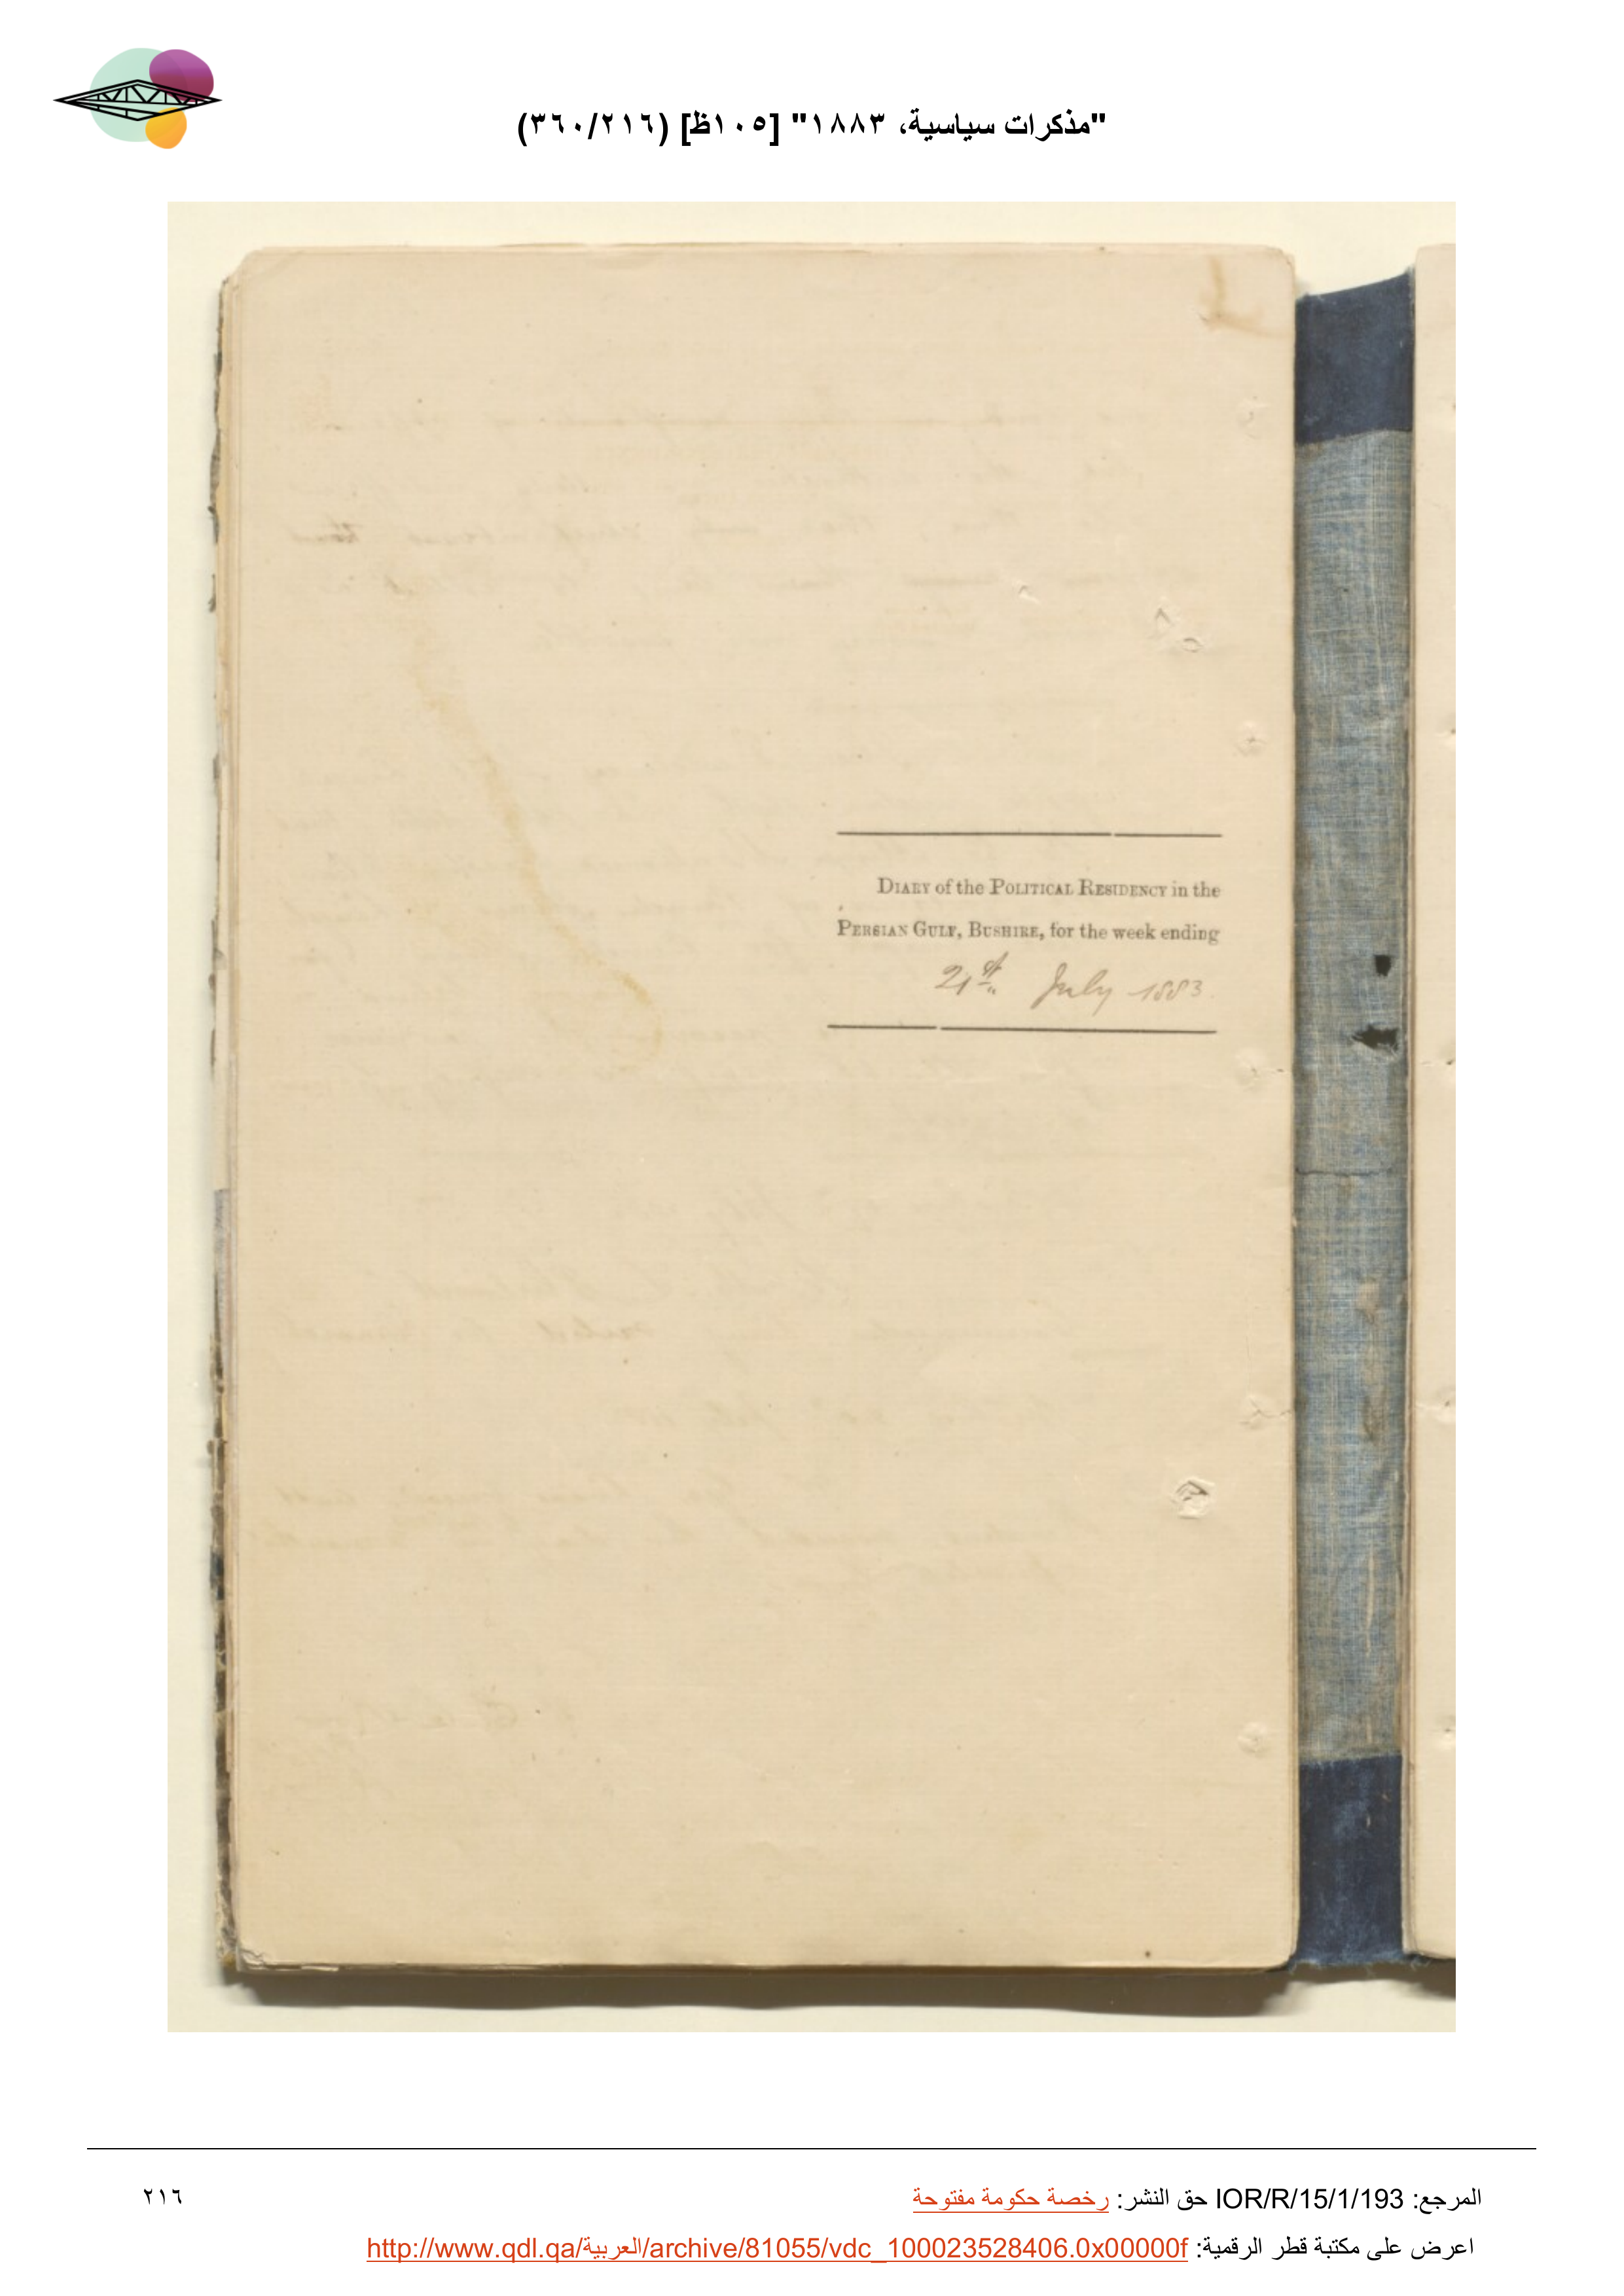 "مذكرات سياسية، ١٨٨٣" [١٠٥ظ] (٣٦٠/٢١٦)
DIARY of the POLITICAL RESIDENCY in the
PERSIAN GULF, BUSHIRE, for the week ending
21st July 1883
المرجع: IOR/R/15/1/193 حق النشر: رخصة حكومة مفتوحة
٢١٦
اعرض على مكتبة قطر الرقمية: http://www.qdl.qa/العربية/archive/81055/vdc_100023528406.0x00000f